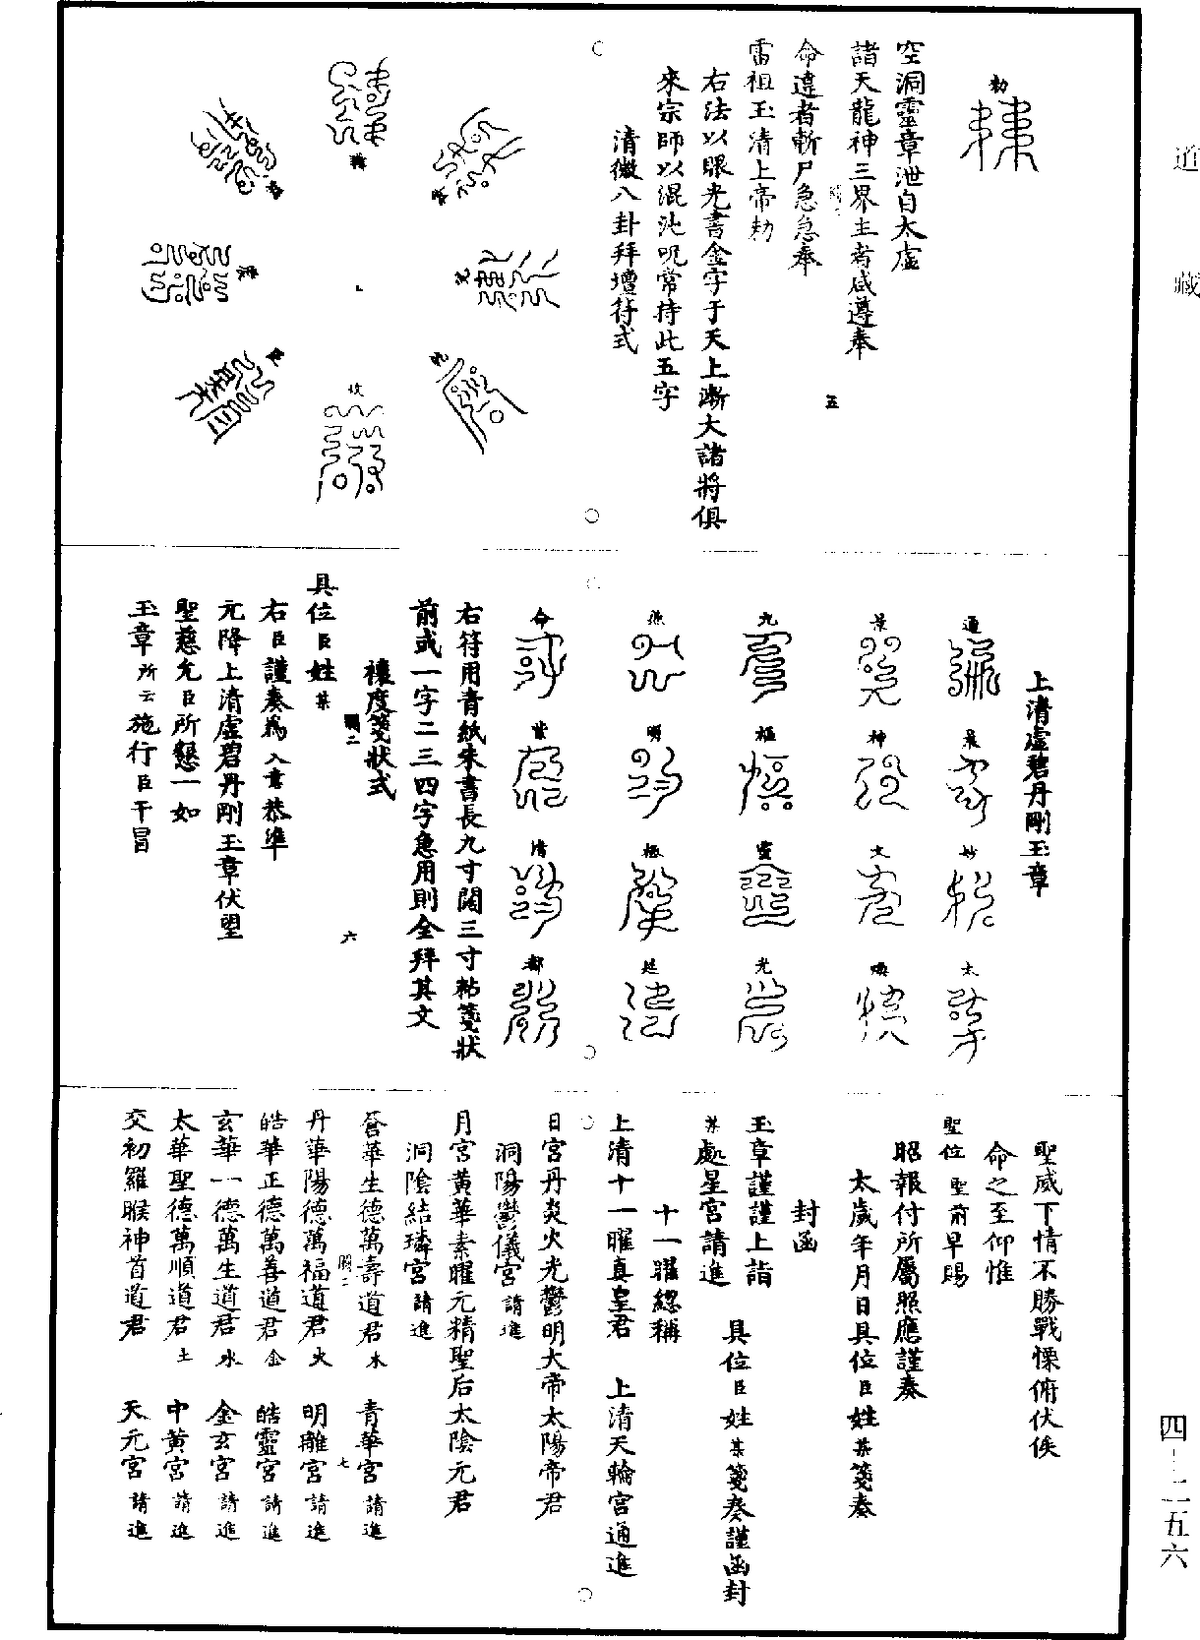 道藏
勑
空洞靈章泄自太虛
諸天龍神三界主者咸遵奉
命違者斬尸急急奉
雷祖玉清上帝勑
右法以眼光書金字于天上漸大諸將俱
來宗師以混沌呪常持此五字
清微八卦拜壇符式
五
上清虛碧丹剛玉章
通 晨 妙 太
景 神 文 喚
九 樞 靈 光
明 極 廷
命 紫 清 都
右符用青紙朱書長九寸闊三寸粘箋狀
前或一字二三四字急用則全拜其文
禳度箋狀式
六
具位臣姓某
右臣謹奏爲入意恭準
元降上清虛碧丹剛玉章伏望
聖慈允臣所懇一如
玉章所云施行臣干冒
聖威下情不勝戰慄俯伏俟
命之至仰惟
聖位聖前早賜
昭報付所屬照應謹奏
太歲年月日具位臣姓某箋奏
封函
玉章謹謹上詣
某處星宮請進 具位臣姓某箋奏謹函封
十一曜總稱
上清十一曜真皇君 上清天輪宮通進
日宮丹炎火光鬱明大帝太陽帝君
洞陽鬱儀宮請進
月宮黃華素曜元精聖后太陰元君
洞陰結璘宮請進
蒼華生德萬壽道君木 青華宮請進
七
丹華陽德萬福道君火 明離宮請進
皓華正德萬善道君金 皓靈宮請進
玄華一德萬生道君水 金玄宮請進
太華聖德萬順道君土 中黃宮請進
交初羅睺神首道君 天元宮請進
四-二五六